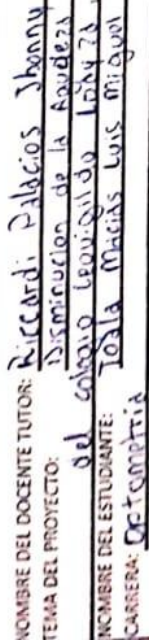 NOMBRE DEL DOCENTE TUTOR: Riccardi Palacios Jhonny
TEMA DEL PROYECTO: Disminucion de la Agudeza
del colegio Leovigildo Loayza
NOMBRE DEL ESTUDIANTE: Toala Macias Luis Miguel
CARRERA: Optometria